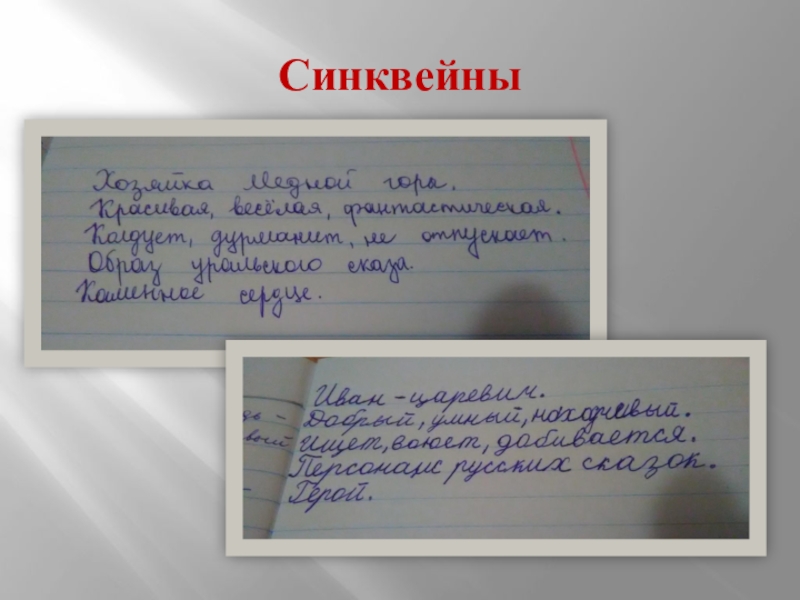 Синквейны
Хозяйка Медной горы.
Красивая, весёлая, фантастическая.
Колдует, дурманит, не отпускает.
Образ уральского сказа.
Каменное сердце.
Иван-царевич.
дь -
Добрый, умный, находчивый.
вый
Ищет, воюет, добивается.
Персонаж русских сказок.
-
Герой.